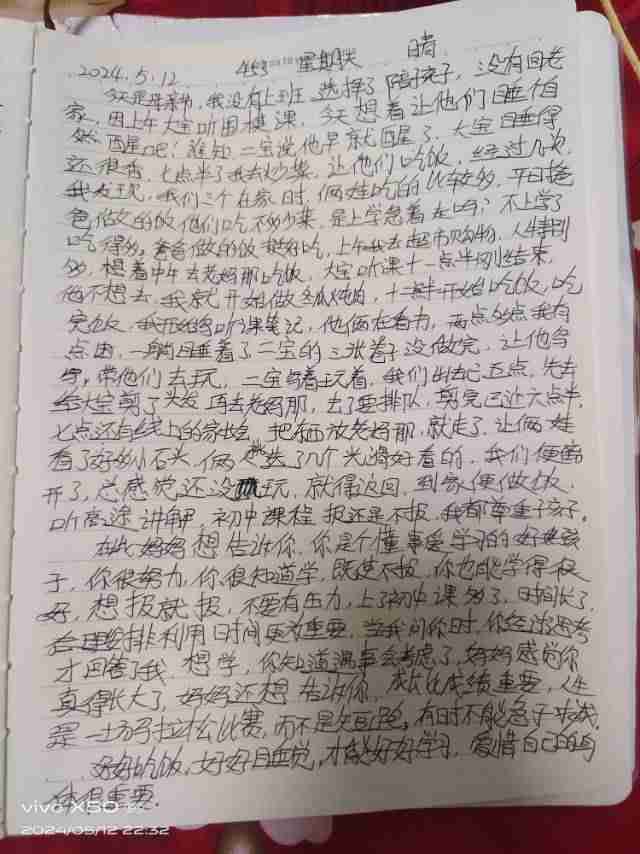 2024.5.12 星期天 晴
今天是母亲节，我没有上班 选择了陪孩子，没有回老
家，因上午大宝听围棋课，今天想着让他们睡个自
然醒吧！谁知二宝说他早就醒了，大宝睡得
还很香，七点半了我去炒菜，让他们吃饭，经过几次
我发现，我们三个在家时，俩娃吃的比较多，平日爸
爸做的饭他们吃不多少菜，是上学急着走吗？不上学了
吃得多，爸爸做的饭挺好吃，上午我去超市购物，人特别
多，想着中午去老妈那吃饭，大宝听课十一点半刚结束，
他不想去，我就开始做冬瓜炖肉，十二点半开始吃饭，吃
完饭，我开始写听课笔记，他俩在看书，两点多点我有
点困，一躺睡着了二宝的三张卷子没做完，让他写
写，带他们去玩，二宝写着玩着，我们出去已五点，先去
给大宝剪了头发再去老妈那，去了要排队，剪完已近六点半，
七点还有线上的家长会，把东西放老妈那，就走了，让俩娃
看了好多小石头，俩娃选了几个光滑好看的，我们便离
开了，总感觉还没玩，就得返回，到家便做饭，
听高途讲解，初中课程 报还是不报，我都尊重孩子，
在此妈妈想告诉你，你是个懂事爱学习的好孩
子，你很努力，你很知道学，既使不报，你也能学得很
好，想报就报，不要有压力，上了初中课多了，时间长了，
合理安排利用时间更为重要，当我问你时，你经过思考
才回答了我 想学，你知道遇事会考虑了，妈妈感觉你
真得长大了，妈妈还想告诉你，成长比成绩重要，人生
是一场马拉松比赛，而不是短跑，有时不能急于求成，
好好吃饭，好好睡觉，才能好好学习，爱惜自己的身
体很重要.
vivo X50
2024/05/12 22:32